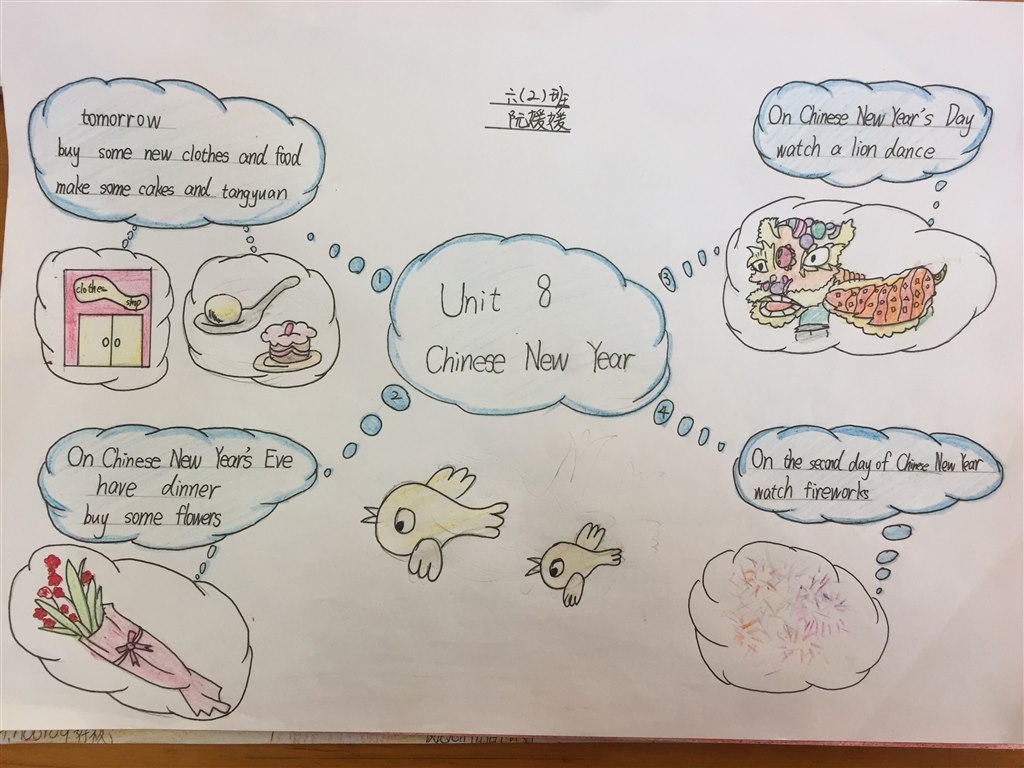 六(2)班
阮媛媛
tomorrow
buy some new clothes and food
make some cakes and tangyuan
clothes
shop
On Chinese New Year's Day
watch a lion dance
1
3
Unit 8
Chinese New Year
2
4
On Chinese New Year's Eve
have dinner
buy some flowers
On the second day of Chinese New Year
watch fireworks